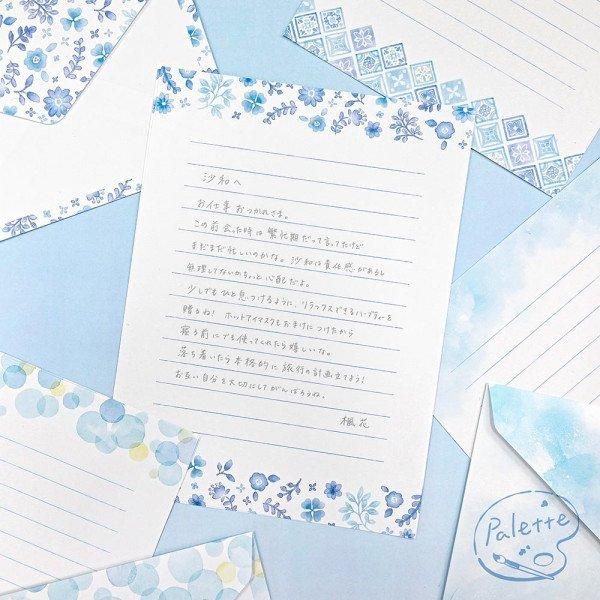 沙和へ
お仕事おつかれさま。
この前会った時は繁忙期だって言ってたけど
まだまだ忙しいのかな。沙和は責任感があるし
無理してないかちょっと心配だよ。
少しでもひと息つけるように、リラックスできるハーブティーを
贈るね! ホットアイマスクもおまけにつけたから
寝る前にでも使ってくれたら嬉しいな。
落ち着いたら本格的に旅行の計画立てよう!
お互い自分を大切にしてがんばろうね。
楓花
Palette